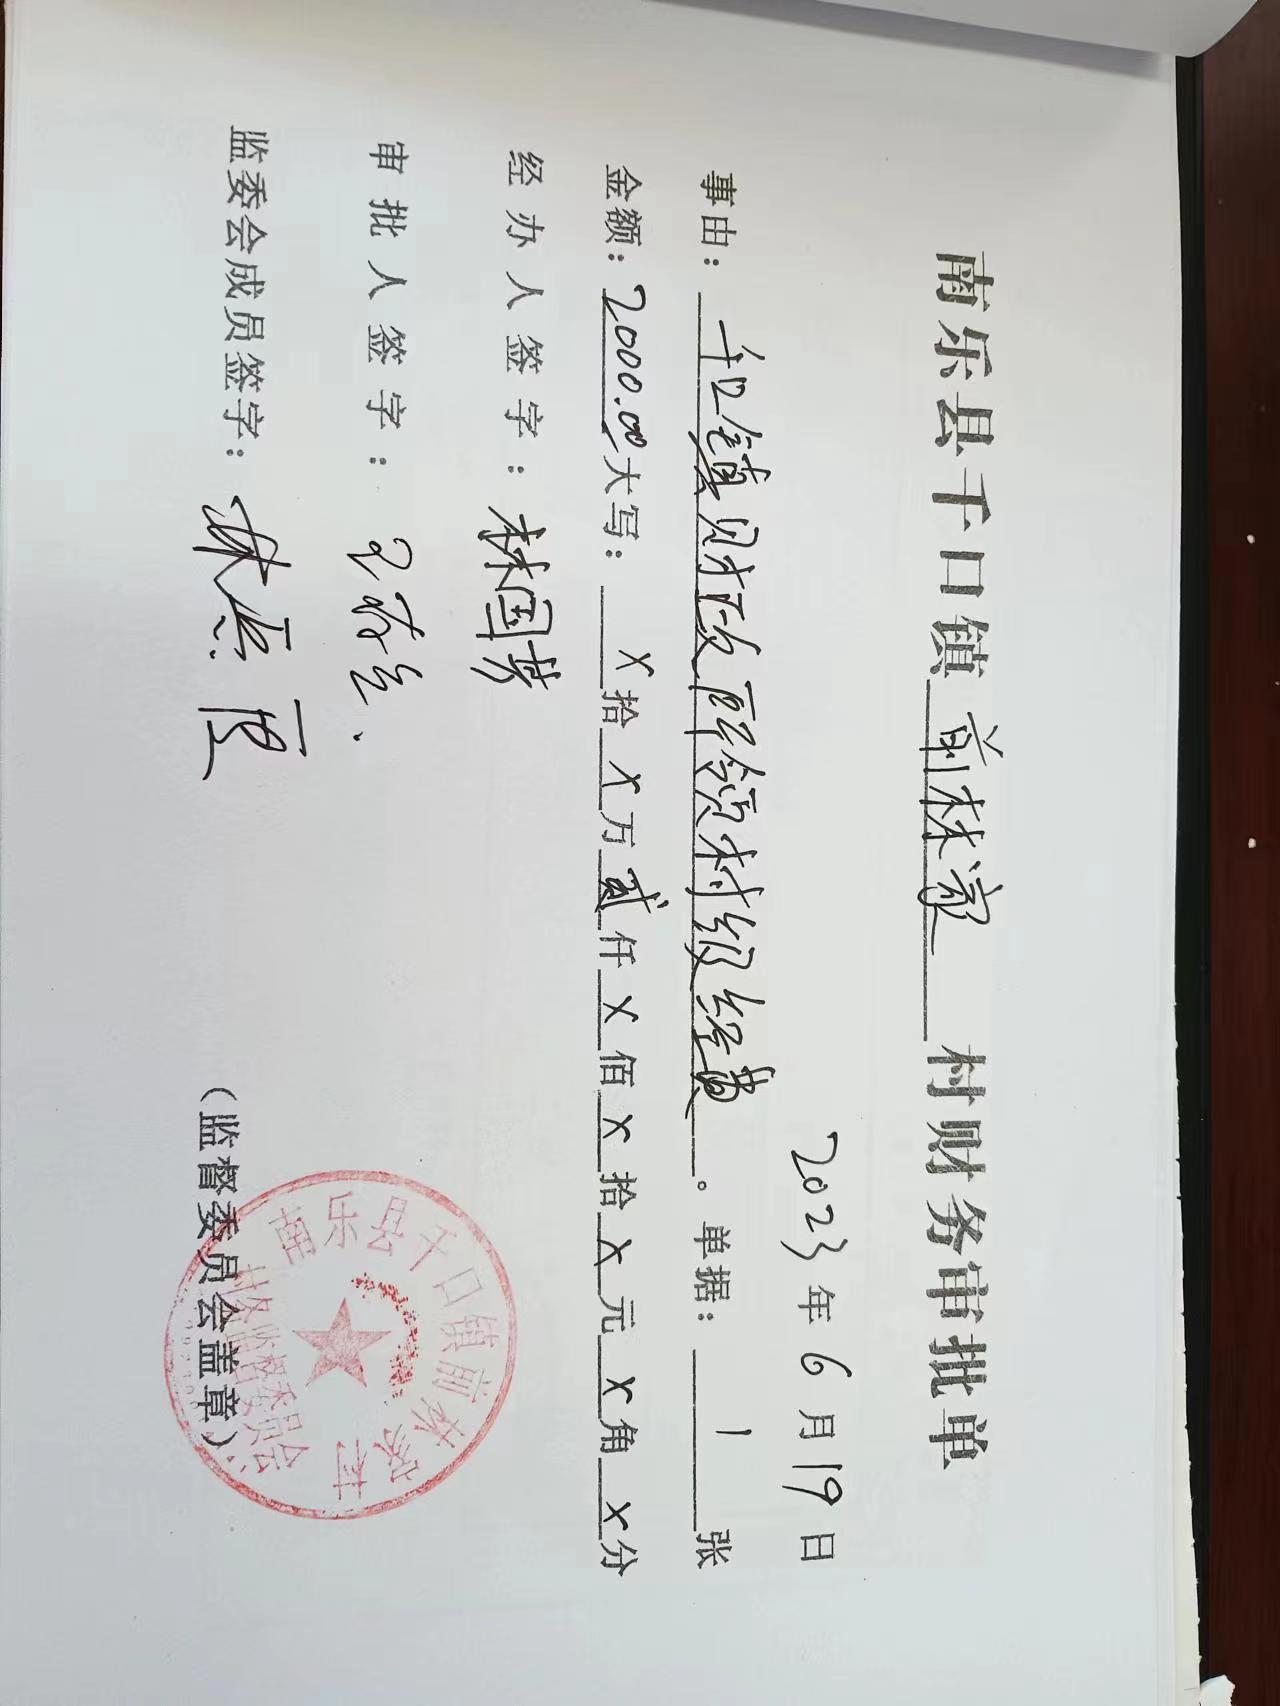 南乐县千口镇前林家村财务审批单
2023年6月19日
事由：千口镇财政所领村级经费。单据：1张
金额：2000.00大写：X拾X万贰仟X佰X拾X元X角X分
经办人签字：林国芳
审批人签字：
监委会成员签字：林
（监督委员会盖章）
南乐县千口镇前林家村
村务监督委员会